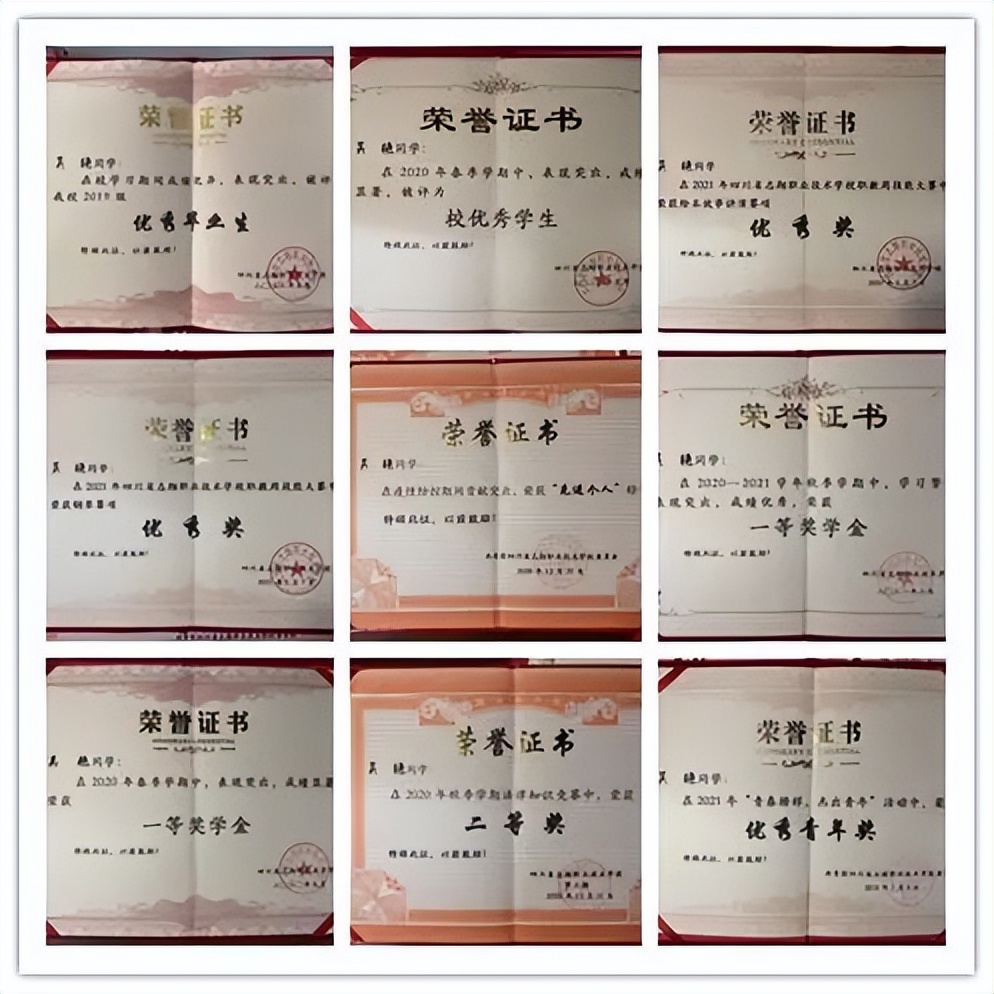 荣誉证书
吴 艳同学：
在校学习期间成绩优异，表现突出，被评
我校2018级
优秀毕业生
特颁此证，以资鼓励！
荣誉证书
吴 艳同学：
在2020年春季学期中、表现突出，成绩
显著，被评为
校优秀学生
特颁此证，以资鼓励！
荣誉证书
吴 艳同学
在2021年四川省志翔职业技术学校职教周技能大赛中
荣获绘本故事讲演赛项
优秀奖
特颁此证，以资鼓励！
荣誉证书
吴 艳同学：
在2021年四川省志翔职业技术学校职教周技能大赛中
荣获钢琴赛项
优秀奖
特颁此证，以资鼓励！
荣誉证书
吴 艳同学：
在疫情防控期间贡献突出，荣获“先进个人”
特颁此证，以资鼓励！
荣誉证书
吴 艳同学：
在2020—2021学年秋季学期中，学习
表现突出，成绩优秀，荣获
一等奖学金
特颁此证，以资鼓励！
荣誉证书
吴 艳同学：
在2020年春季学期中，表现突出，成绩显著
荣获
一等奖学金
特颁此证，以资鼓励！
荣誉证书
吴 艳同学
在2020年秋季学期法律知识竞赛中，荣获
二等奖
特颁此证，以资鼓励！
荣誉证书
吴 艳同学：
在2021年“青春榜样，杰出青年”活动中，
优秀青年奖
特颁此证，以资鼓励！